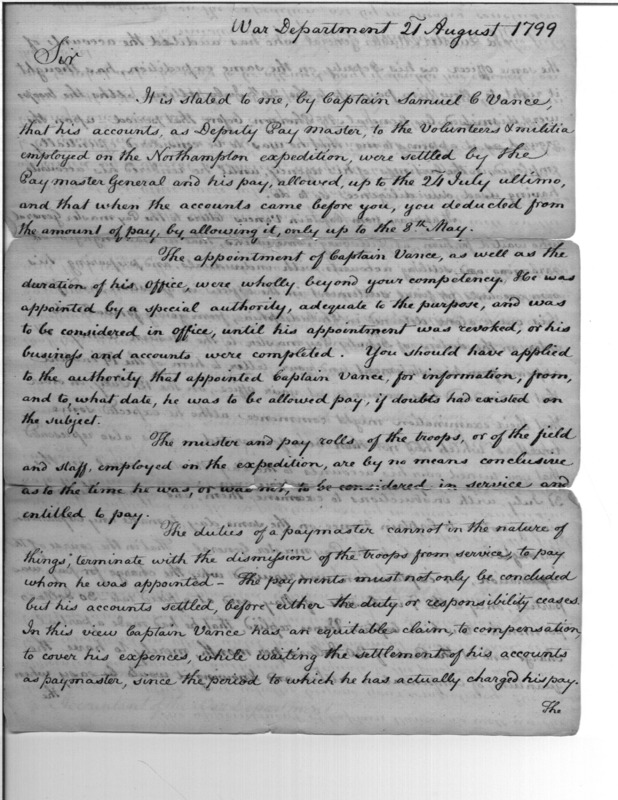 War Department 21 August 1799
Sir
It is stated to me, by Captain Samuel C Vance,
that his accounts, as Deputy Pay master, to the Volunteers & militia
employed on the Northampton expedition, were settled by the
Paymaster General and his pay, allowed, up to the 24 July ultimo,
and that when the accounts came before you, you deducted from
the amount of pay, by allowing it, only up to the 8th May.
The appointment of Captain Vance, as well as the
duration of his office, were wholly beyond your competency, He was
appointed by a special authority, adequate to the purpose, and was
to be considered in office, until his appointment was revoked, or his
business and accounts were completed. You should have applied
to the authority that appointed Captain Vance, for information, from,
and to, what date, he was to be allowed pay, if doubts had existed on
the subject.
The muster and pay rolls of the troops, or of the field
and staff, employed on the expedition, are by no means conclusive
as to the time he was, or was not, to be considered in service and
entitled to pay.
The duties of a paymaster cannot in the nature of
things, terminate with the dismission of the troops from service, to pay
whom he was appointed - The payments must not only be concluded
but his accounts settled, before either the duty or responsibility ceases.
In this view Captain Vance has an equitable claim, to compensation
to cover his expences, while waiting the settlement of his accounts
as paymaster, since the period to which he has actually charged his pay.
The